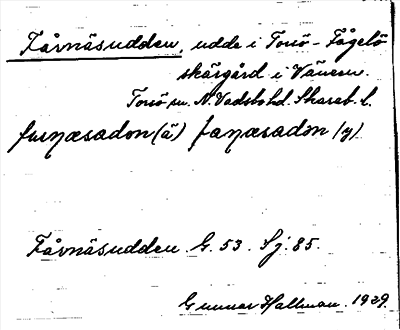 Fårnäsudden, udde i Torsö-Fågelö
skärgård i Vänern.
Torsö sn. N. Vadsbo hd. Skarab. l.
(ä) (y)
Fårnäsudden. G. 53. Sj. 85.
Gunnar Hallman. 1929.